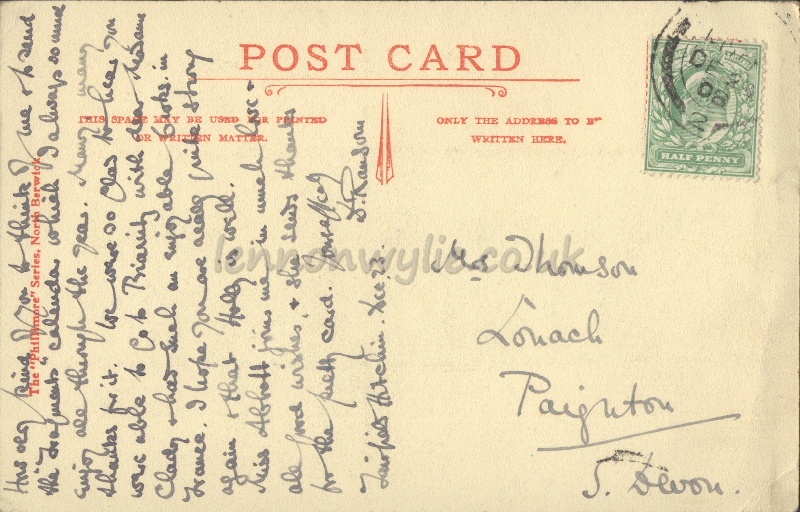 POST CARD
THIS SPACE MAY BE USED FOR PRINTED
OR WRITTEN MATTER.
ONLY THE ADDRESS TO BE
WRITTEN HERE.
HALF PENNY
DE 23
08
The "Phillimore" Series, North Berwick
How very kind of you to think of me & to send
the "Fragments" calendar which I always so much
enjoy all through the year. Many many
thanks for it. We were so glad to hear you
were able to go to with dear Madame
Clady & had such an enjoyable in
France. I hope you are really quite strong
again & that Holly is well.
Miss Abbott joins me in much love &
all good wishes, & she sends thanks
for the pretty card. Yours affecly
D. Ransom
Fairfield Hitchin. Dec 23.
Mrs Thomson
Lonach
Paignton
S. Devon.
lennonwylie.co.uk